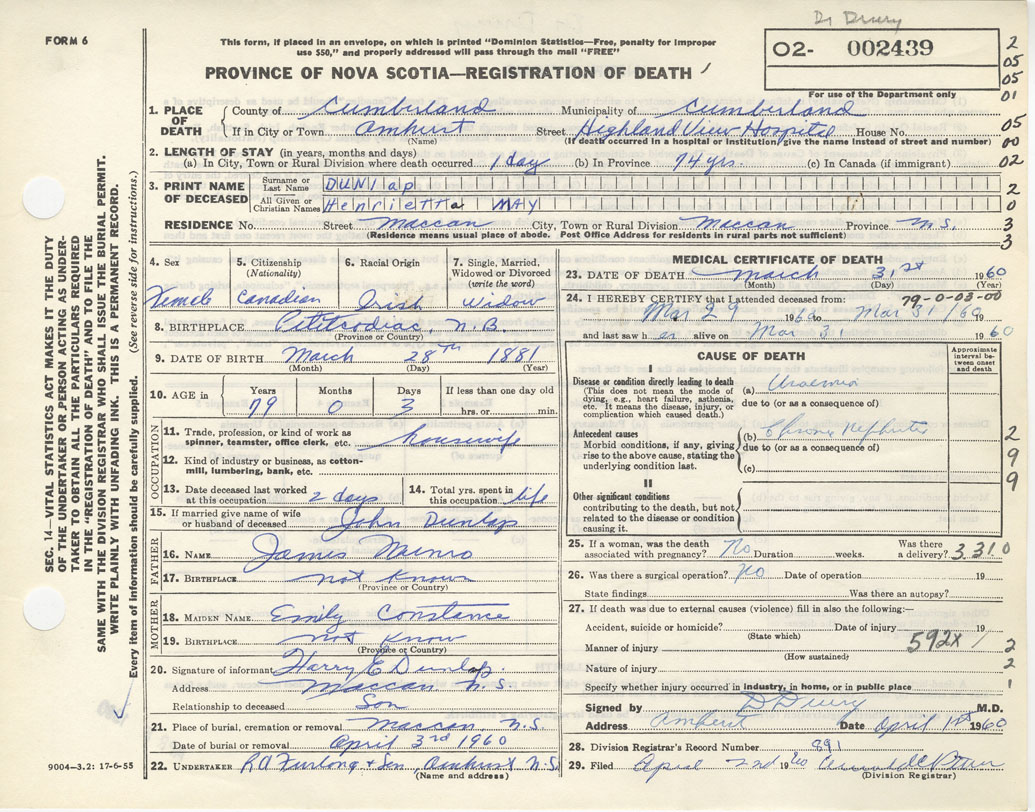 Dr Drury
FORM 6
This form, if placed in an envelope, on which is printed "Dominion Statistics—Free, penalty for improper
use $50," and properly addressed will pass through the mail "FREE"
O2- 002439
For use of the Department only
PROVINCE OF NOVA SCOTIA—REGISTRATION OF DEATH
2
05
05
01
05
00
02
2
0
3
3
SEC. 14—VITAL STATISTICS ACT MAKES IT THE DUTY
OF THE UNDERTAKER OR PERSON ACTING AS UNDER-
TAKER TO OBTAIN ALL THE PARTICULARS REQUIRED
IN THE "REGISTRATION OF DEATH" AND TO FILE THE
SAME WITH THE DIVISION REGISTRAR WHO SHALL ISSUE THE BURIAL PERMIT.
WRITE PLAINLY WITH UNFADING INK. THIS IS A PERMANENT RECORD.
Every item of information should be carefully supplied. (See reverse side for instructions.)
1. PLACE OF DEATH County of Cumberland Municipality of Cumberland
If in City or Town Amherst Street Highland View Hospital House No.
(Name) (If death occurred in a hospital or institution give the name instead of street and number)
2. LENGTH OF STAY (in years, months and days)
(a) In City, Town or Rural Division where death occurred 1 day (b) In Province 74 yrs. (c) In Canada (if immigrant)
3. PRINT NAME OF DECEASED Surname or Last Name DUNlap
All Given or Christian Names Henrietta MAY
RESIDENCE No. Street Maccan City, Town or Rural Division Maccan Province N.S.
(Residence means usual place of abode. Post Office Address for residents in rural parts not sufficient)
4. Sex 5. Citizenship (Nationality) 6. Racial Origin 7. Single, Married, Widowed or Divorced (write the word)
Female Canadian Irish Widow
8. BIRTHPLACE Petitcodiac, N.B.
(Province or Country)
9. DATE OF BIRTH March 28th 1881
(Month) (Day) (Year)
10. AGE in Years Months Days If less than one day old
79 0 3 hrs. or min.
OCCUPATION
11. Trade, profession, or kind of work as
spinner, teamster, office clerk, etc. housewife
12. Kind of industry or business, as cotton-
mill, lumbering, bank, etc.
13. Date deceased last worked at this occupation 2 days 14. Total yrs. spent in this occupation life
15. If married give name of wife or husband of deceased John Dunlap
FATHER
16. NAME James Munro
17. BIRTHPLACE not Known
(Province or Country)
MOTHER
18. MAIDEN NAME Emily Constance
19. BIRTHPLACE not Know
(Province or Country)
20. Signature of informant Harry E Dunlap.
Address Maccan N.S.
Relationship to deceased Son
21. Place of burial, cremation or removal Maccan N.S.
Date of burial or removal April 3rd 1960
22. UNDERTAKER R A Furlong & Son, Amherst N.S.
(Name and address)
9004—3.2: 17-6-55
MEDICAL CERTIFICATE OF DEATH
23. DATE OF DEATH March 31st 1960
(Month) (Day) (Year)
79-0-03-00
24. I HEREBY CERTIFY that I attended deceased from:
Mar 29 1960 to Mar 31/60 19
and last saw her alive on Mar 31 1960
CAUSE OF DEATH
Approximate interval between onset and death
I
Disease or condition directly leading to death
(This does not mean the mode of
dying, e.g., heart failure, asthenia,
etc. It means the disease, injury, or
complication which caused death.)
(a) Uraemia
due to (or as a consequence of)
Antecedent causes
Morbid conditions, if any, giving
rise to the above cause, stating the
underlying condition last.
(b) Chronic Nephritis
due to (or as a consequence of)
(c)
2
9
9
II
Other significant conditions
contributing to the death, but not
related to the disease or condition
causing it.
25. If a woman, was the death associated with pregnancy? No Duration weeks. Was there a delivery? 3310
26. Was there a surgical operation? No Date of operation 19
State findings Was there an autopsy?
27. If death was due to external causes (violence) fill in also the following:—
Accident, suicide or homicide? Date of injury 19
(State which)
592X 1
Manner of injury
(How sustained)
Nature of injury
Specify whether injury occurred in industry, in home, or in public place
2
2
1
Signed by D Drury M.D.
Address Amherst Date April 1st 1960
28. Division Registrar's Record Number 891
29. Filed April 2nd 1960
(Division Registrar)